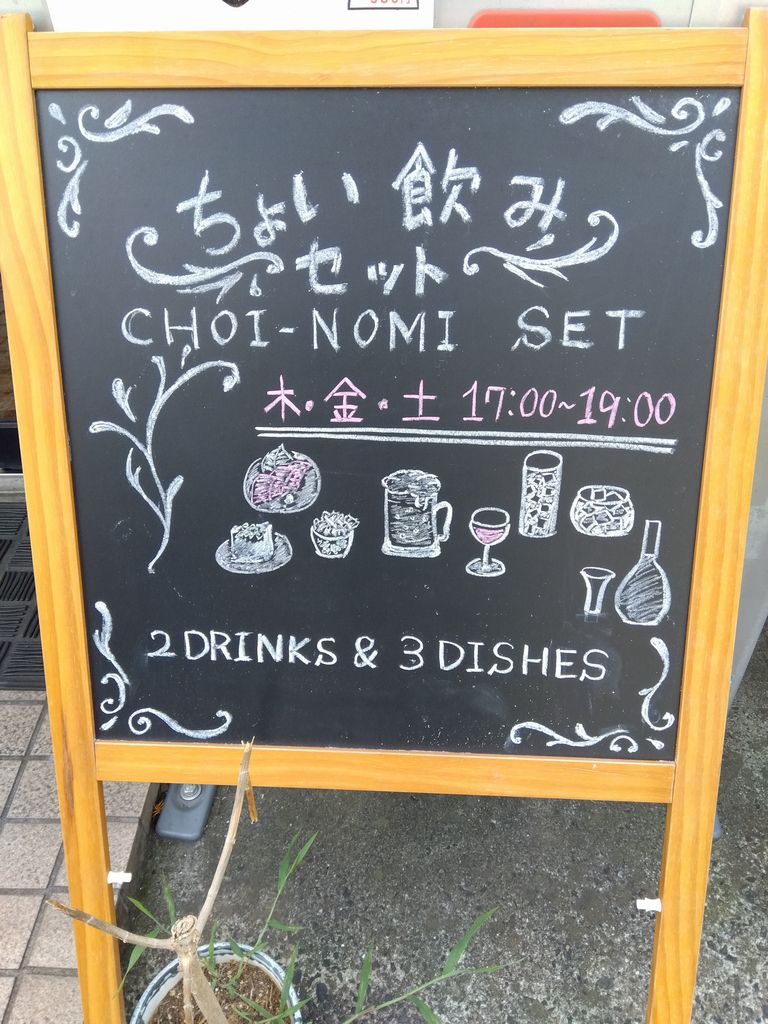 ちょい飲み
セット
CHOI-NOMI SET
木・金・土 17:00~19:00
2 DRINKS & 3 DISHES